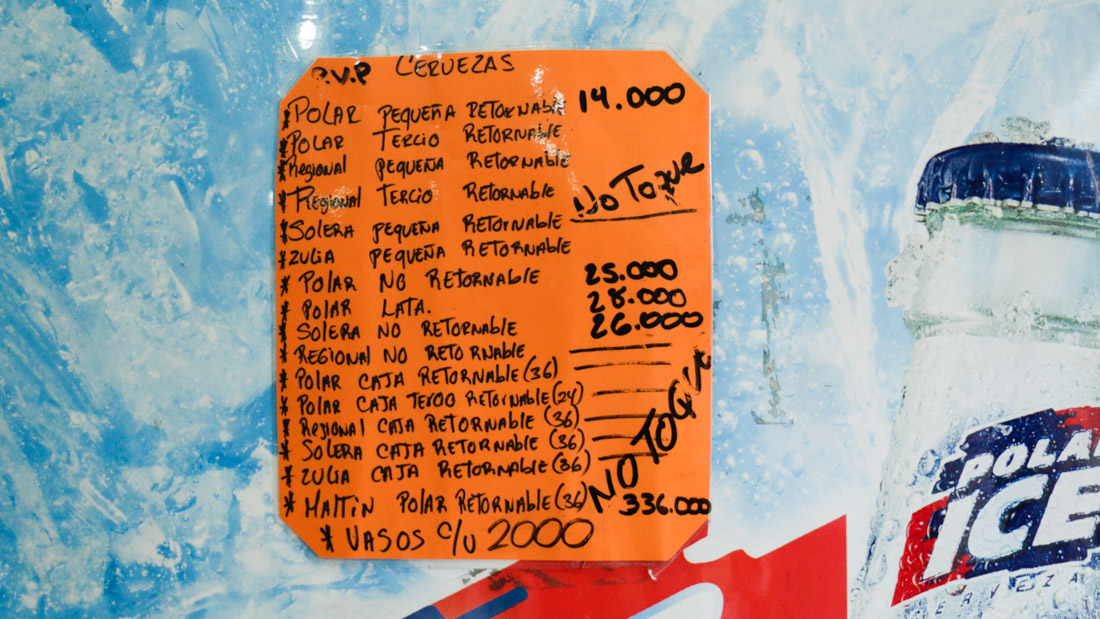 P.V.P CERVEZAS
* POLAR PEQUEÑA RETORNABLE 14.000
* POLAR TERCIO RETORNABLE
* REGIONAL PEQUEÑA RETORNABLE
* REGIONAL TERCIO RETORNABLE NO TOQUE
* SOLERA PEQUEÑA RETORNABLE
* ZULIA PEQUEÑA RETORNABLE
* POLAR NO RETORNABLE 25.000
* POLAR LATA. 28.000
* SOLERA NO RETORNABLE 26.000
* REGIONAL NO RETORNABLE
* POLAR CAJA RETORNABLE (36)
* POLAR CAJA TERCIO RETORNABLE (24)
* REGIONAL CAJA RETORNABLE (36)
* SOLERA CAJA RETORNABLE (36)
* ZULIA CAJA RETORNABLE (36) NO TOQUE
* MALTIN POLAR RETORNABLE (36) 336.000
* VASOS C/U 2000
POLAR
ICE
CERVEZA